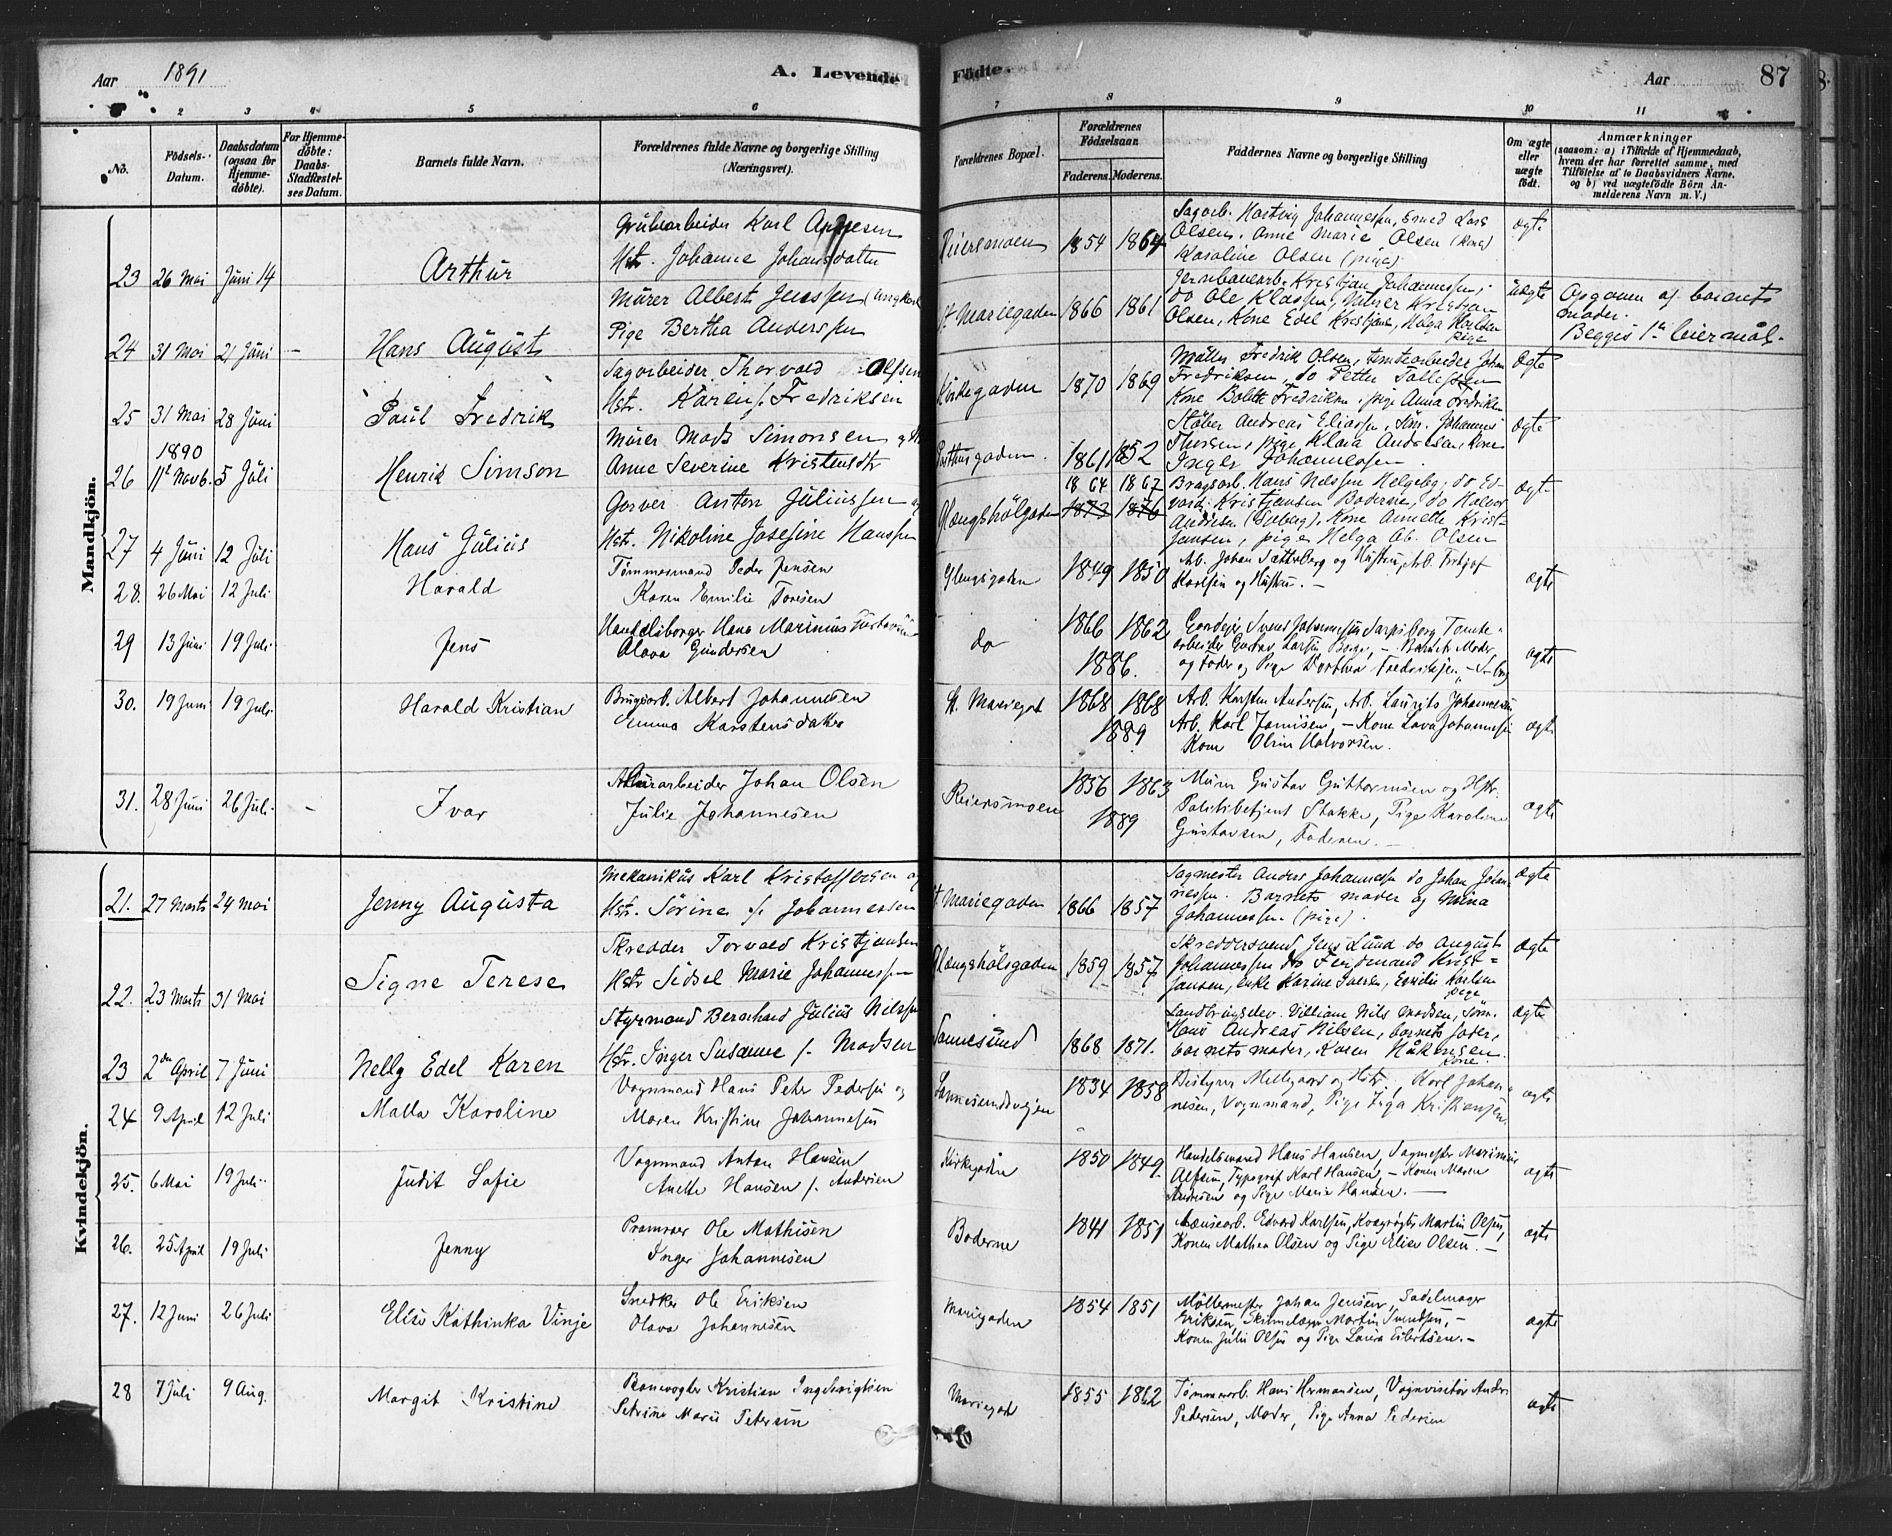 Aar 1891 A. Levende Fødte. Aar 87
1 2 3 4 5 6 7 8 9 10 11
No.
Fødsels-Datum.
Daabsdatum (ogsaa for Hjemmedøbte).
For Hjemmedøbte: Daabs-Stadfæstelses Datum.
Barnets fulde Navn.
Forældrenes fulde Navne og borgerlige Stilling (Næringsvei).
Forældrenes Bopæl.
Forældrenes Fødselsaar. Faderens. Moderens.
Faddernes Navne og borgerlige Stilling
Om ægte eller uægte født.
Anmærkninger
(saasom: a) i Tilfælde af Hjemmedaab,
hvem der har forrettet samme, med
Tilføielse af to Daabsvidners Navne.
og b) ved uægtefødte Børn Anmelderens Navn m. V.)
Mandkjøn.
23 26 Mai Juni 14 Arthur
Grubearbeider Karl
Hstr. Johanne Johansdatter
Reiersmoen 1854 1864
Sagarb. Hartvig Johannessen, Smed Lars
Olsen, Anne Marie Olsen (kone)
Karoline Olsen (pige)
ægte
24 31 Mai 21 Juni – Hans August
Murer Albert Jenssen (ungkarl
Pige Bertha Anderssen
St Mariegaden 1866 1861
Jernbanearb. Kristjan Johannessen,
do Ole Klassen, Murer Kristjan
Olsen, Kone Edel Kristjans, Helga Karlsen
pige
uægte
Opgaven af barnets
moder.
Begges 1ste leiermål.
25 31 Mai 28 Juni Paul Fredrik
Sagarbeider Thorvald Olfsen
Hstr. Karen f. Fredriksen
Kirkegaden 1870 1869
Møller Fredrik Olsen, tomtearbeider Johan
Fredriksen, do Petter Tollefsen
Kone Bolette Fredriksen, pige Anna Fredriksen
ægte
26 1890 11te Novb. 5 Juli Henrik Simson
Murer Mads Simonsen og H
Anne Severine Kristensdtr
1861 1852
Støber Andreas Eliassen, Tøm. Johannes
Thorsen, pige Klara Andersen, Kone
Inger Johannessen.
ægte
27 4 Juni 12 Juli Hans Julius
Garver Anton Juliussen og
Hstr. Nikoline Josefine Hanssen
Glængshølgaden 1864 1867
1873 1876
Brugsarb. Hans Nilssen Helgeby, do Ed-
vard Kristjansen Boderne, do Halvor
Andresen, Kone Annette Krist-
jansen, pige Helga Ob. Olsen
ægte
28. 26 Mai 12 Juli Harald
Tømmermand Peder Jensen
Karen Emilie Toresen
Glengsgaden 1849 1850
Arb. Johan Sætterberg og Hustru, Arb. Fritjof
Karlsen og Hustru. –
ægte
29 13 Juni 19 Juli. Jens
Handelsborger Hans Marinius
Olava Gundersen
do 1866 1862
1886.
Gaardeier Svend Johannessen Sarpsborg, Tomte-
arbeider Gustav Larsen Borge, – Barnets Moder
og Fader og Pige Dorthea Fredriksen
ægte
30. 19 Juni 19 Juli Harald Kristian
Brugsarb. Albert Johannesen
Emma Karstensdatter
St. Mariegad 1868 1868
1889
Arb. Karsten Andersen, Arb. Laurits Johannesen
Arb. Karl Jonsisen – Kone Lova Johannessen
Kone Oline Halvorsen.
ægte
31. 28 Juni 26 Juli. – Ivar
Murarbeider Johan Olsen
Julie Johannesen
Reiersmoen 1856 1863
1889
Murer Gustav Guttormsen og Hstr.
Politibetjent Stakke, Pige Karoline
Gustavsen, Faderen. –
ægte
Kvindekjøn.
21. 27 Marts 24 Mai Jenny Augusta
Mekanikus Karl Kristoffersen og
Hstr. Sørine f. Johannessen
St. Mariegaden 1866 1857
Sagmester Anders Johannessen do Johan Johan-
nessen. Barnets moder og Mina
Johannessen (pige).
ægte
22. 23 Marts 31 Mai Signe Terese
Skrædder Torvald Kristjansen
Hstr Sidsel Marie Johannessen
Glængshølsgaden 1859 1857
Skræddersvend Jens Lund do August
Johannessen do Ferdinand Krist-
jansen, enke Karine Iversen, Emilie Karlsen
pige
ægte
23 2den April 7 Juni Nelly Edel Karen
Styrmand Bernhard Julius Nilssen
Hstr. Inger Susanne f. Madsen
Sannesund 1868 1871.
Landbrugselev William Nils Madsen, Tøm.
Hans Andreas Nilsen, barnets fader,
barnets moder, Karen Håkensen
kone
ægte
24 9 April 12 Juli Malla Karoline
Vognmand Hans Peter Pedersen og
Maren Kristine Johannesen
Sannesundsvejen 1834 1858
Bestyrer Mellgaard og Hstr., Karl Johan-
nesen, Vognmand, Pige Inga Kristiansen
ægte
25. 6 Mai 19 Juli. Judit Sofie
Vognmand Anton Hansen
Anette Hansen f. Andersen
Kirkegaden 1850 1849.
Handelsmand Hans Hansen, Sagmester Marinius
Alfsen, Typograf Karl Hansen, – Konen Maren
Andersen og Pige Maria Hansen. –
ægte
26. 25 April 19 Juli Jenny
Pramroer Ole Mathisen
Inger Johannesen
Boderne 1841 1851
Edvard Karlsen, Kvægrøgter Martin Olsen,
Konen Mathea Olsen og Pige Elise Olsen. –
ægte
27. 12 Juni 26 Juli Elise Kathinka Vinje
Snedker Ole Eriksen
Olava Johannesen
Mariegaden 1854 1851
Møllermester Johan Jensen, Sadelmager
Eriksen, Martin Svendsen, –
Konen Julie Olsen og Pige Laura Eilertsen. –
ægte
28 7 Juli 9 Aug. Margit Kristine
Banevogter Kristian Ingebrigtsen
Petrine Marie Petersen
Mariegad 1855 1862
Tømmerarb. Hans Hermansen, Vognvisitør Anders
Pedersen, Moder, Pige Anna Pedersen
ægte